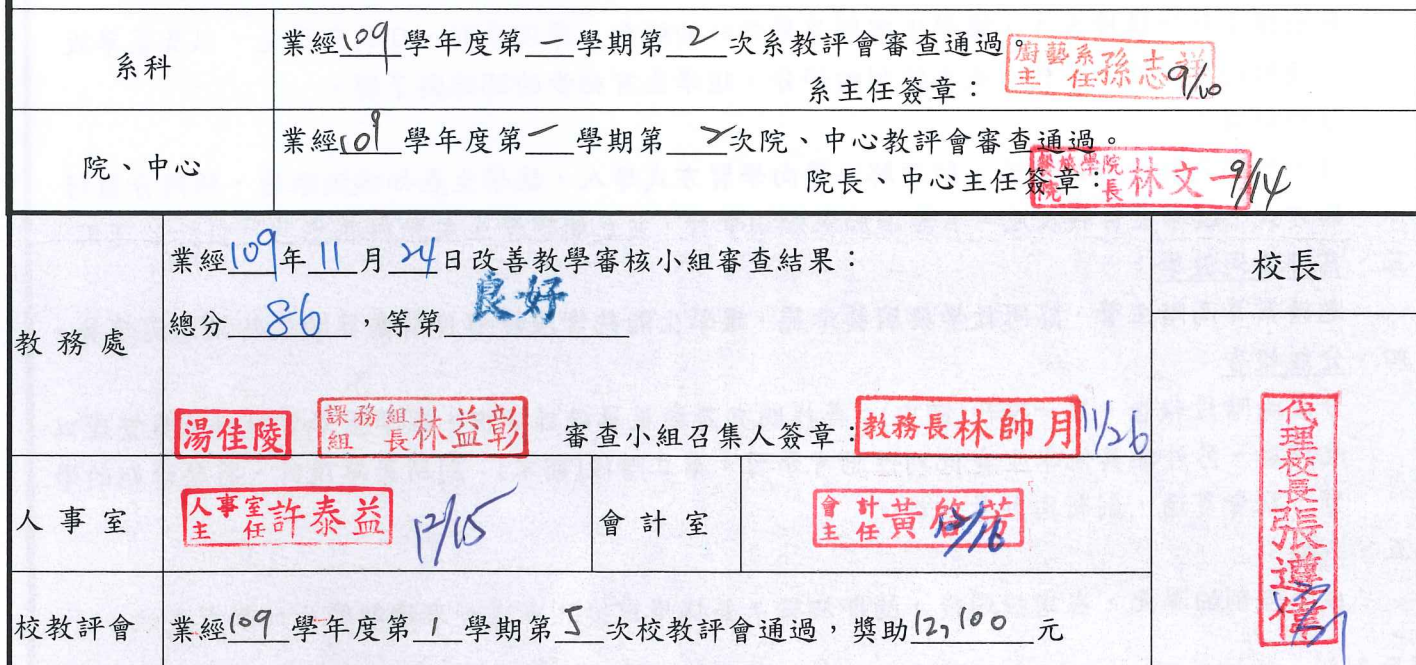 系科
業經109學年度第一學期第2次系教評會審查通過。
系主任簽章：
廚藝系主任孫志祥 9/10
院、中心
業經109學年度第一學期第2次院、中心教評會審查通過。
院長、中心主任簽章：
餐旅學院院長林文一 9/14
教務處
業經109年11月24日改善教學審核小組審查結果：
總分 86 等第 良好
湯佳陵 課務組組長林益彰 審查小組召集人簽章：教務長林帥月 11/26
校長
代理校長張遵偉
人事室
人事室主任許泰益 12/15
會計室
會計主任黃 12/16
校教評會
業經109學年度第1學期第5次校教評會通過，獎助12,100元